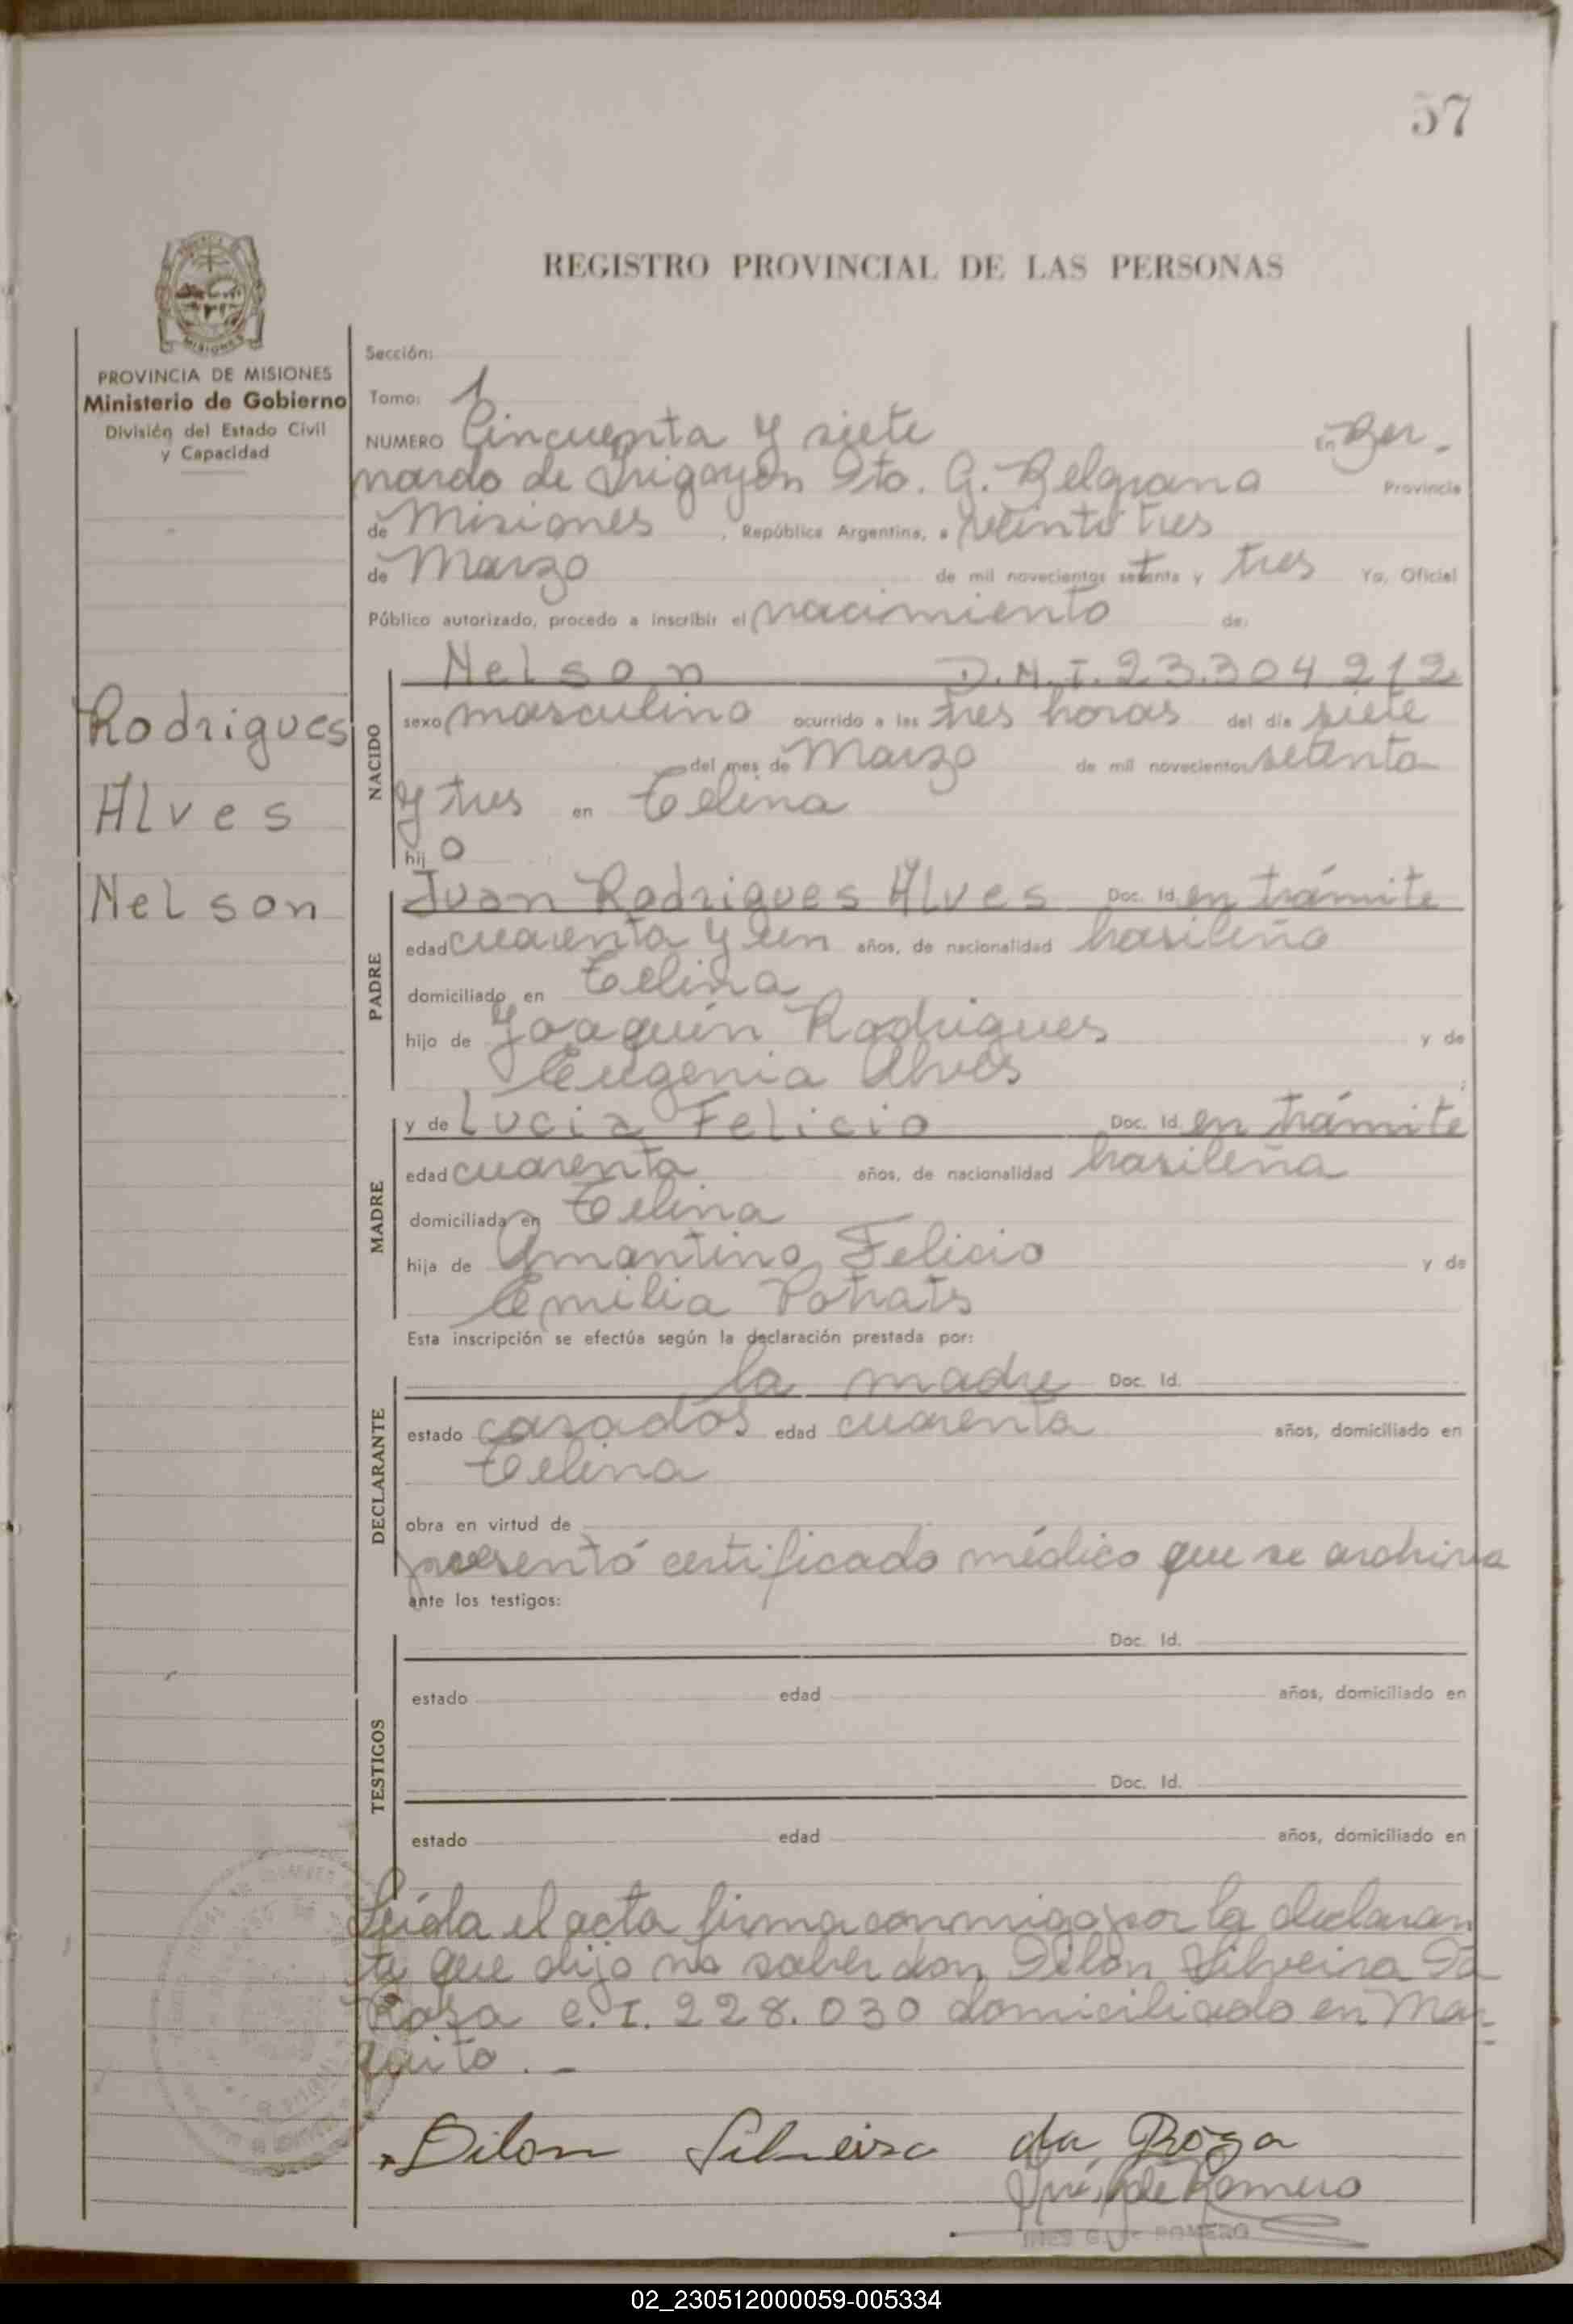 57
REGISTRO PROVINCIAL DE LAS PERSONAS
MISIONES
PROVINCIA DE MISIONES
Ministerio de Gobierno
División del Estado Civil
y Capacidad
Rodrigues
Alves
Nelson
Sección:
Tomo: 1
NUMERO Cincuenta y siete En Ber-
nardo de Irigoyen Dto. G. Belgrano Provincia
de Misiones, República Argentina, a veinte tres
de Marzo de mil novecientos setenta y tres Yo, Oficial
Público autorizado, procedo a inscribir el nacimiento de:
NACIDO
Nelson D.N.I. 23.304 212
sexo masculino ocurrido a las tres horas del día siete
del mes de Marzo de mil novecientos setenta
y tres en Celina
hij o
PADRE
Juan Rodrigues Alves Doc. Id. en trámite
edad cuarenta y un años, de nacionalidad brasileño
domiciliado en Celina
hijo de Joaquín Rodrigues y de
Eugenia Alves
MADRE
y de Lucia Felicio Doc. Id. en trámite
edad cuarenta años, de nacionalidad brasileña
domiciliada en Celina
hija de Amantino Felicio y de
Emilia
Esta inscripción se efectúa según la declaración prestada por:
DECLARANTE
la madre Doc. Id.
estado casados edad cuarenta años, domiciliado en
Celina
obra en virtud de
presentó certificado médico que se archiva
ante los testigos:
TESTIGOS
Doc. Id.
estado edad años, domiciliado en
Doc. Id.
estado edad años, domiciliado en
Leída el acta firma conmigo por la declaran
te que dijo no saber don Dilon Silveira Da
Rosa C.I. 228.030 domiciliado en

Dilon Silveira da Roza
de Romero
INES G. DE ROMERO
02_230512000059-005334